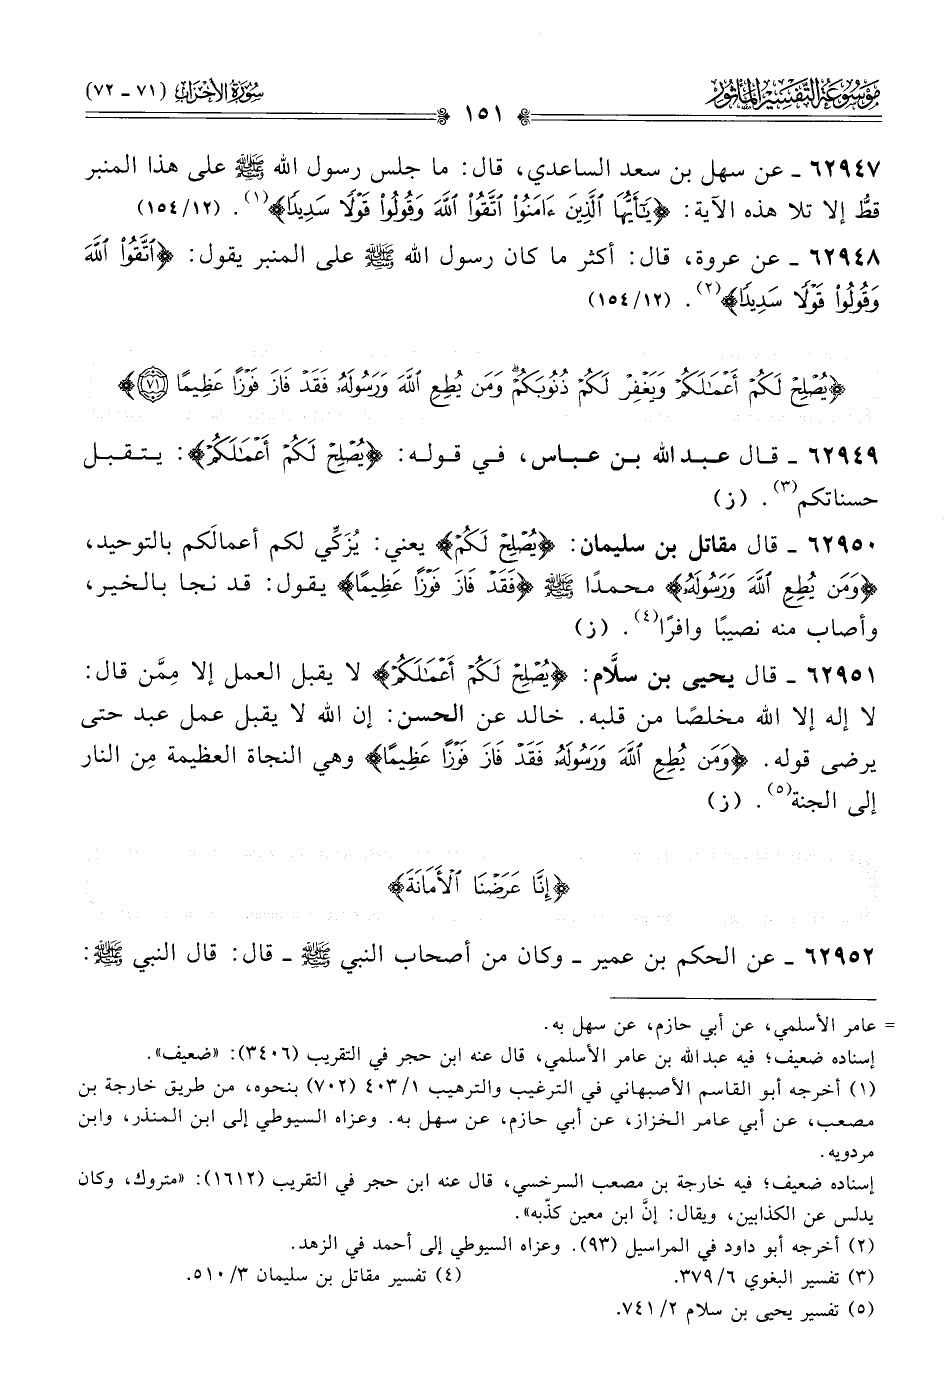 موسوعة التفسير المأثور
سورة الأحزاب (٧١ - ٧٢)
١٥١
٦٢٩٤٧ - عن سهل بن سعد الساعدي، قال: ما جلس رسول الله ﷺ على هذا المنبر
قطُّ إلا تلا هذه الآية: ﴿يَٰٓأَيُّهَا ٱلَّذِينَ ءَامَنُوا۟ ٱتَّقُوا۟ ٱللَّهَ وَقُولُوا۟ قَوْلًا سَدِيدًا﴾(١). (١٥٤/١٢)
٦٢٩٤٨ - عن عروة، قال: أكثر ما كان رسول الله ﷺ على المنبر يقول: ﴿ٱتَّقُوا۟ ٱللَّهَ
وَقُولُوا۟ قَوْلًا سَدِيدًا﴾(٢). (١٥٤/١٢)
﴿يُصْلِحْ لَكُمْ أَعْمَٰلَكُمْ وَيَغْفِرْ لَكُمْ ذُنُوبَكُمْ ۗ وَمَن يُطِعِ ٱللَّهَ وَرَسُولَهُۥ فَقَدْ فَازَ فَوْزًا عَظِيمًا ٧١﴾
٦٢٩٤٩ - قال عبد الله بن عباس، في قوله: ﴿يُصْلِحْ لَكُمْ أَعْمَٰلَكُمْ﴾: يتقبل
حسناتكم(٣). (ز)
٦٢٩٥٠ - قال مقاتل بن سليمان: ﴿يُصْلِحْ لَكُمْ﴾ يعني: يُزَكِّي لكم أعمالَكم بالتوحيد،
﴿وَمَن يُطِعِ ٱللَّهَ وَرَسُولَهُۥ﴾ محمدًا ﷺ ﴿فَقَدْ فَازَ فَوْزًا عَظِيمًا﴾ يقول: قد نجا بالخير،
وأصاب منه نصيبًا وافرًا(٤). (ز)
٦٢٩٥١ - قال يحيى بن سلَّام: ﴿يُصْلِحْ لَكُمْ أَعْمَٰلَكُمْ﴾ لا يقبل العمل إلا مِمَّن قال:
لا إله إلا الله مخلصًا من قلبه. خالد عن الحسن: إن الله لا يقبل عمل عبد حتى
يرضى قوله. ﴿وَمَن يُطِعِ ٱللَّهَ وَرَسُولَهُۥ فَقَدْ فَازَ فَوْزًا عَظِيمًا﴾ وهي النجاة العظيمة مِن النار
إلى الجنة(٥). (ز)
﴿إِنَّا عَرَضْنَا ٱلْأَمَانَةَ﴾
٦٢٩٥٢ - عن الحكم بن عمير - وكان من أصحاب النبي ﷺ - قال: قال النبي ﷺ:
= عامر الأسلمي، عن أبي حازم، عن سهل به.
إسناده ضعيف؛ فيه عبدالله بن عامر الأسلمي، قال عنه ابن حجر في التقريب (٣٤٠٦): «ضعيف».
(١) أخرجه أبو القاسم الأصبهاني في الترغيب والترهيب ٤٠٣/١ (٧٠٢) بنحوه، من طريق خارجة بن
مصعب، عن أبي عامر الخزاز، عن أبي حازم، عن سهل به. وعزاه السيوطي إلى ابن المنذر، وابن
مردويه.
إسناده ضعيف؛ فيه خارجة بن مصعب السرخسي، قال عنه ابن حجر في التقريب (١٦١٢): «متروك، وكان
يدلس عن الكذابين، ويقال: إنَّ ابن معين كذّبه».
(٢) أخرجه أبو داود في المراسيل (٩٣). وعزاه السيوطي إلى أحمد في الزهد.
(٣) تفسير البغوي ٣٧٩/٦. (٤) تفسير مقاتل بن سليمان ٥١٠/٣.
(٥) تفسير يحيى بن سلام ٧٤١/٢.